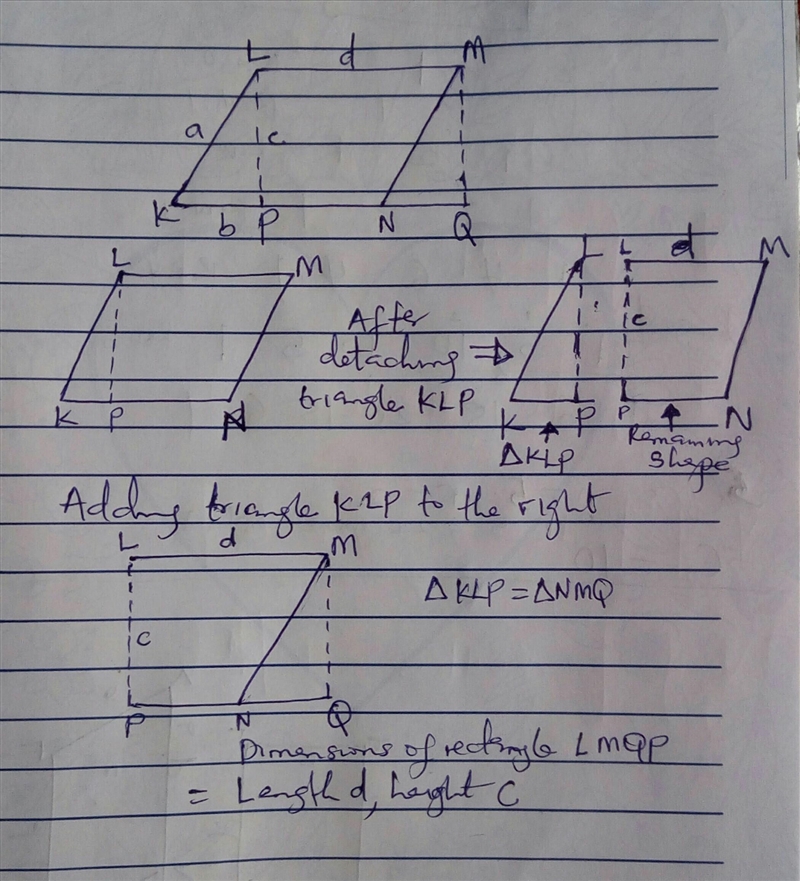 L d M
a c
K b P N Q
L M
K P N
After
detaching
triangle KLP
⇒
L L d M
c
K P P N
↑ ↑
ΔKLP Remaining
Shape
Adding triangle KLP to the right
L d M
c
P N Q
ΔKLP = ΔNMQ
Dimensions of rectangle LMQP
= Length d, height C